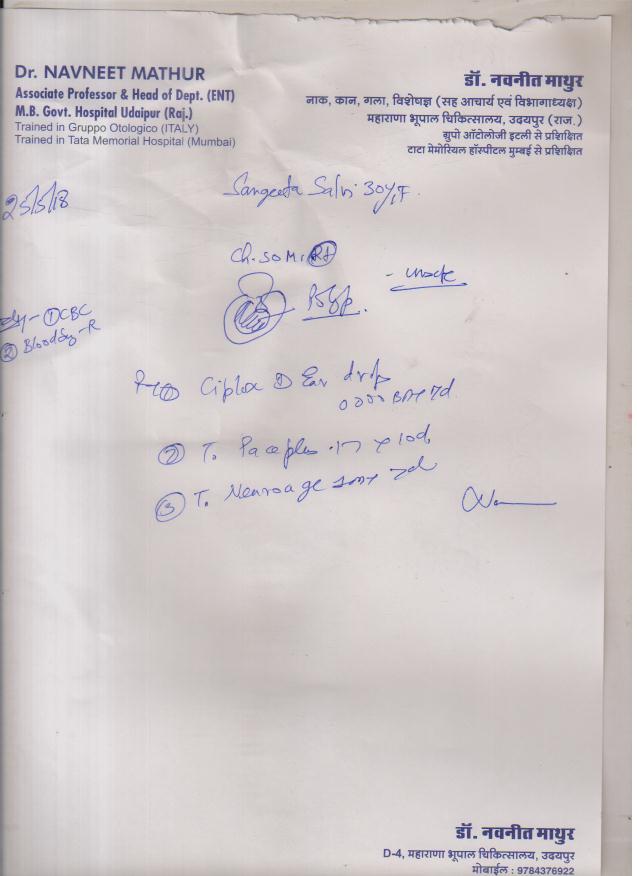 Dr. NAVNEET MATHUR
Associate Professor & Head of Dept. (ENT)
M.B. Govt. Hospital Udaipur (Raj.)
Trained in Gruppo Otologico (ITALY)
Trained in Tata Memorial Hospital (Mumbai)
डॉ. नवनीत माथुर
नाक, कान, गला, विशेषज्ञ (सह आचार्य एवं विभागाध्यक्ष)
महाराणा भूपाल चिकित्सालय, उदयपुर (राज.)
ग्रुपो ऑटोलोजी इटली से प्रशिक्षित
टाटा मेमोरियल हॉस्पीटल मुम्बई से प्रशिक्षित
25/5/18
Sangeeta Salvi 30y/F
Ch. SOM Rt
Polyp.
① CBC
② Blood Sug - R
① Ciplox D Ear drop
7d
② T. x 10d
③ T. Neuroage 7d
डॉ. नवनीत माथुर
D-4, महाराणा भूपाल चिकित्सालय, उदयपुर
मोबाईल : 9784376922